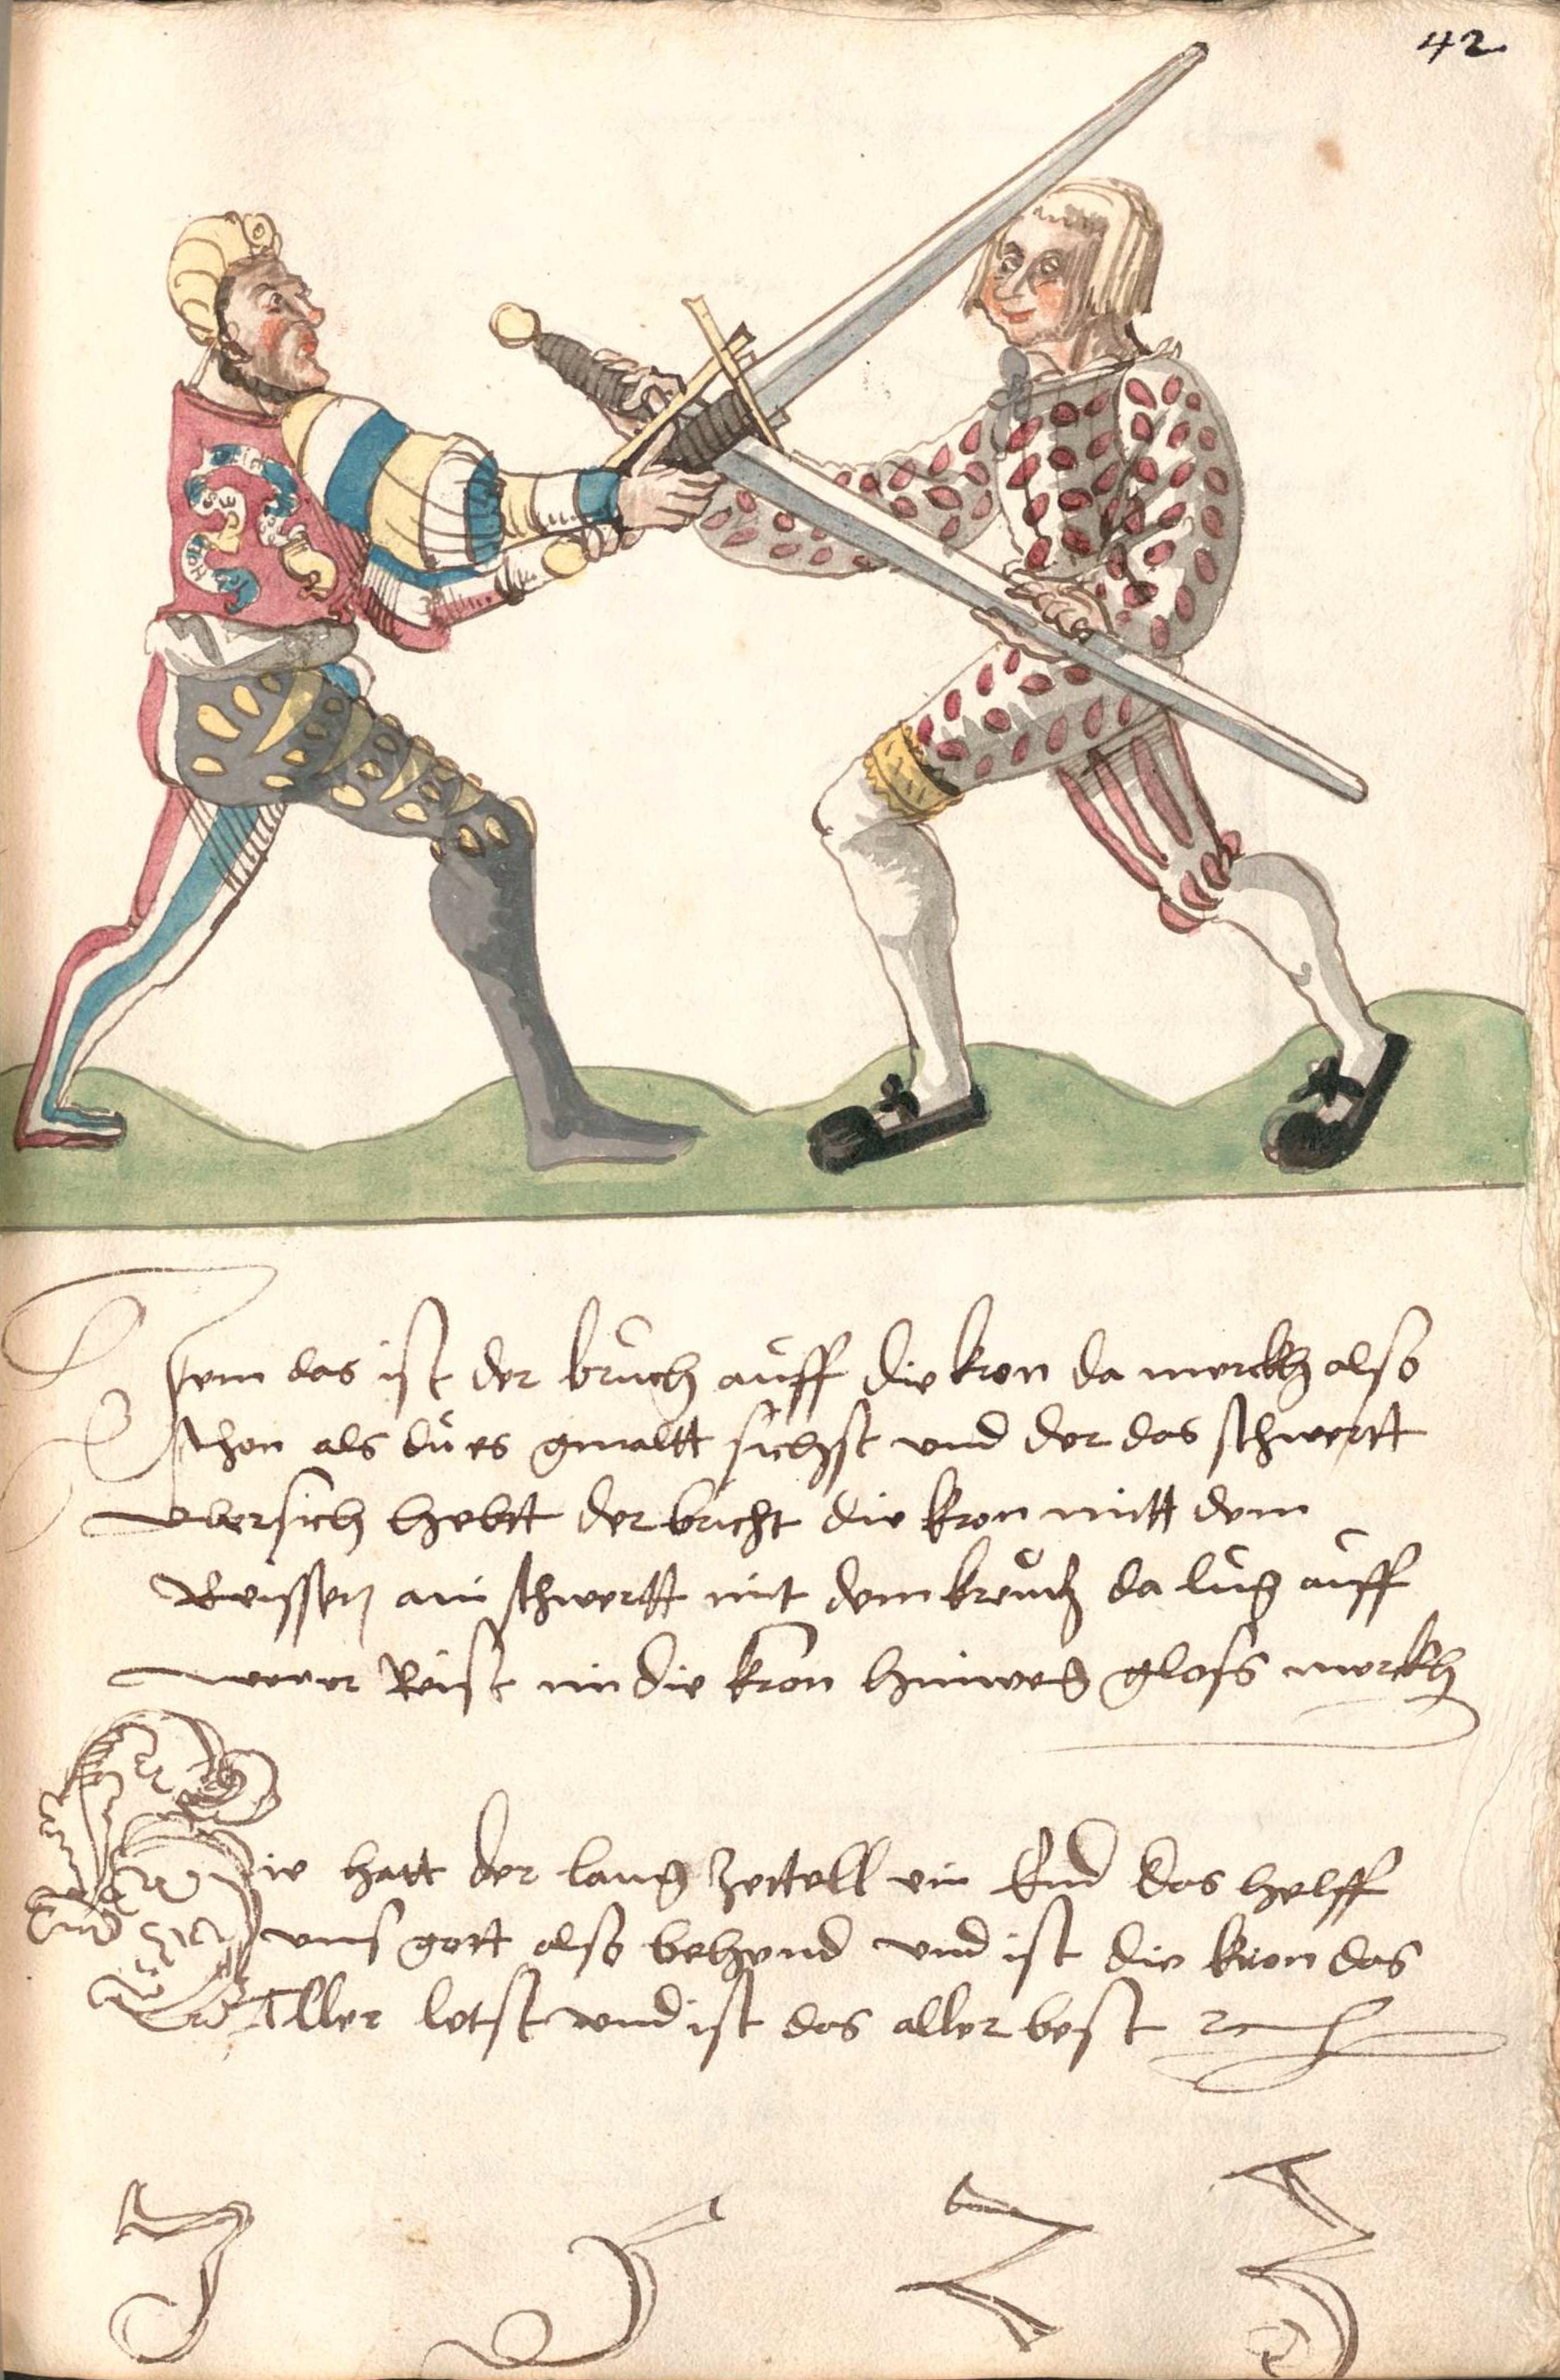 42
Item das ist der bruch auff die kron da merckh also
schon als du es gmaltt sichst vnd der das schwertt
vbersich hebtt der bricht die kron mitt dem
Reissen am schwertt mit dem kreutz da lug auff
wener Reist im die kron hinweg gloss merckh
Hie hatt der lang Zettell ein End das helff
vns gott also behend vnd ist die kron das
Aller letst vnd ist das aller best
1 5 2 3